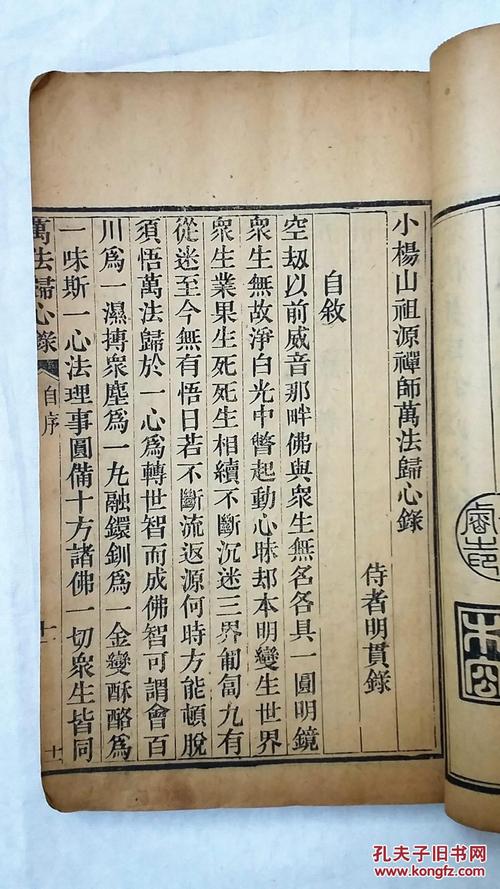 小楊山祖源禪師萬法歸心錄
侍者明貫錄
自敘
空劫以前威音那畔佛與衆生無名各具一圓明鏡
衆生無故淨白光中瞥起動心昧却本明變生世界
衆生業果生死死生相續不斷沉迷三界匍匐九有
從迷至今無有悟日若不斷流返源何時方能頓脫
須悟萬法歸於一心爲轉世智而成佛智可謂會百
川爲一濕摶衆塵爲一丸融鐶釧爲一金變酥酪爲
一味斯一心法理事圓備十方諸佛一切衆生皆同
萬法歸心錄
自序
孔夫子旧书网
KONGFZ.COM